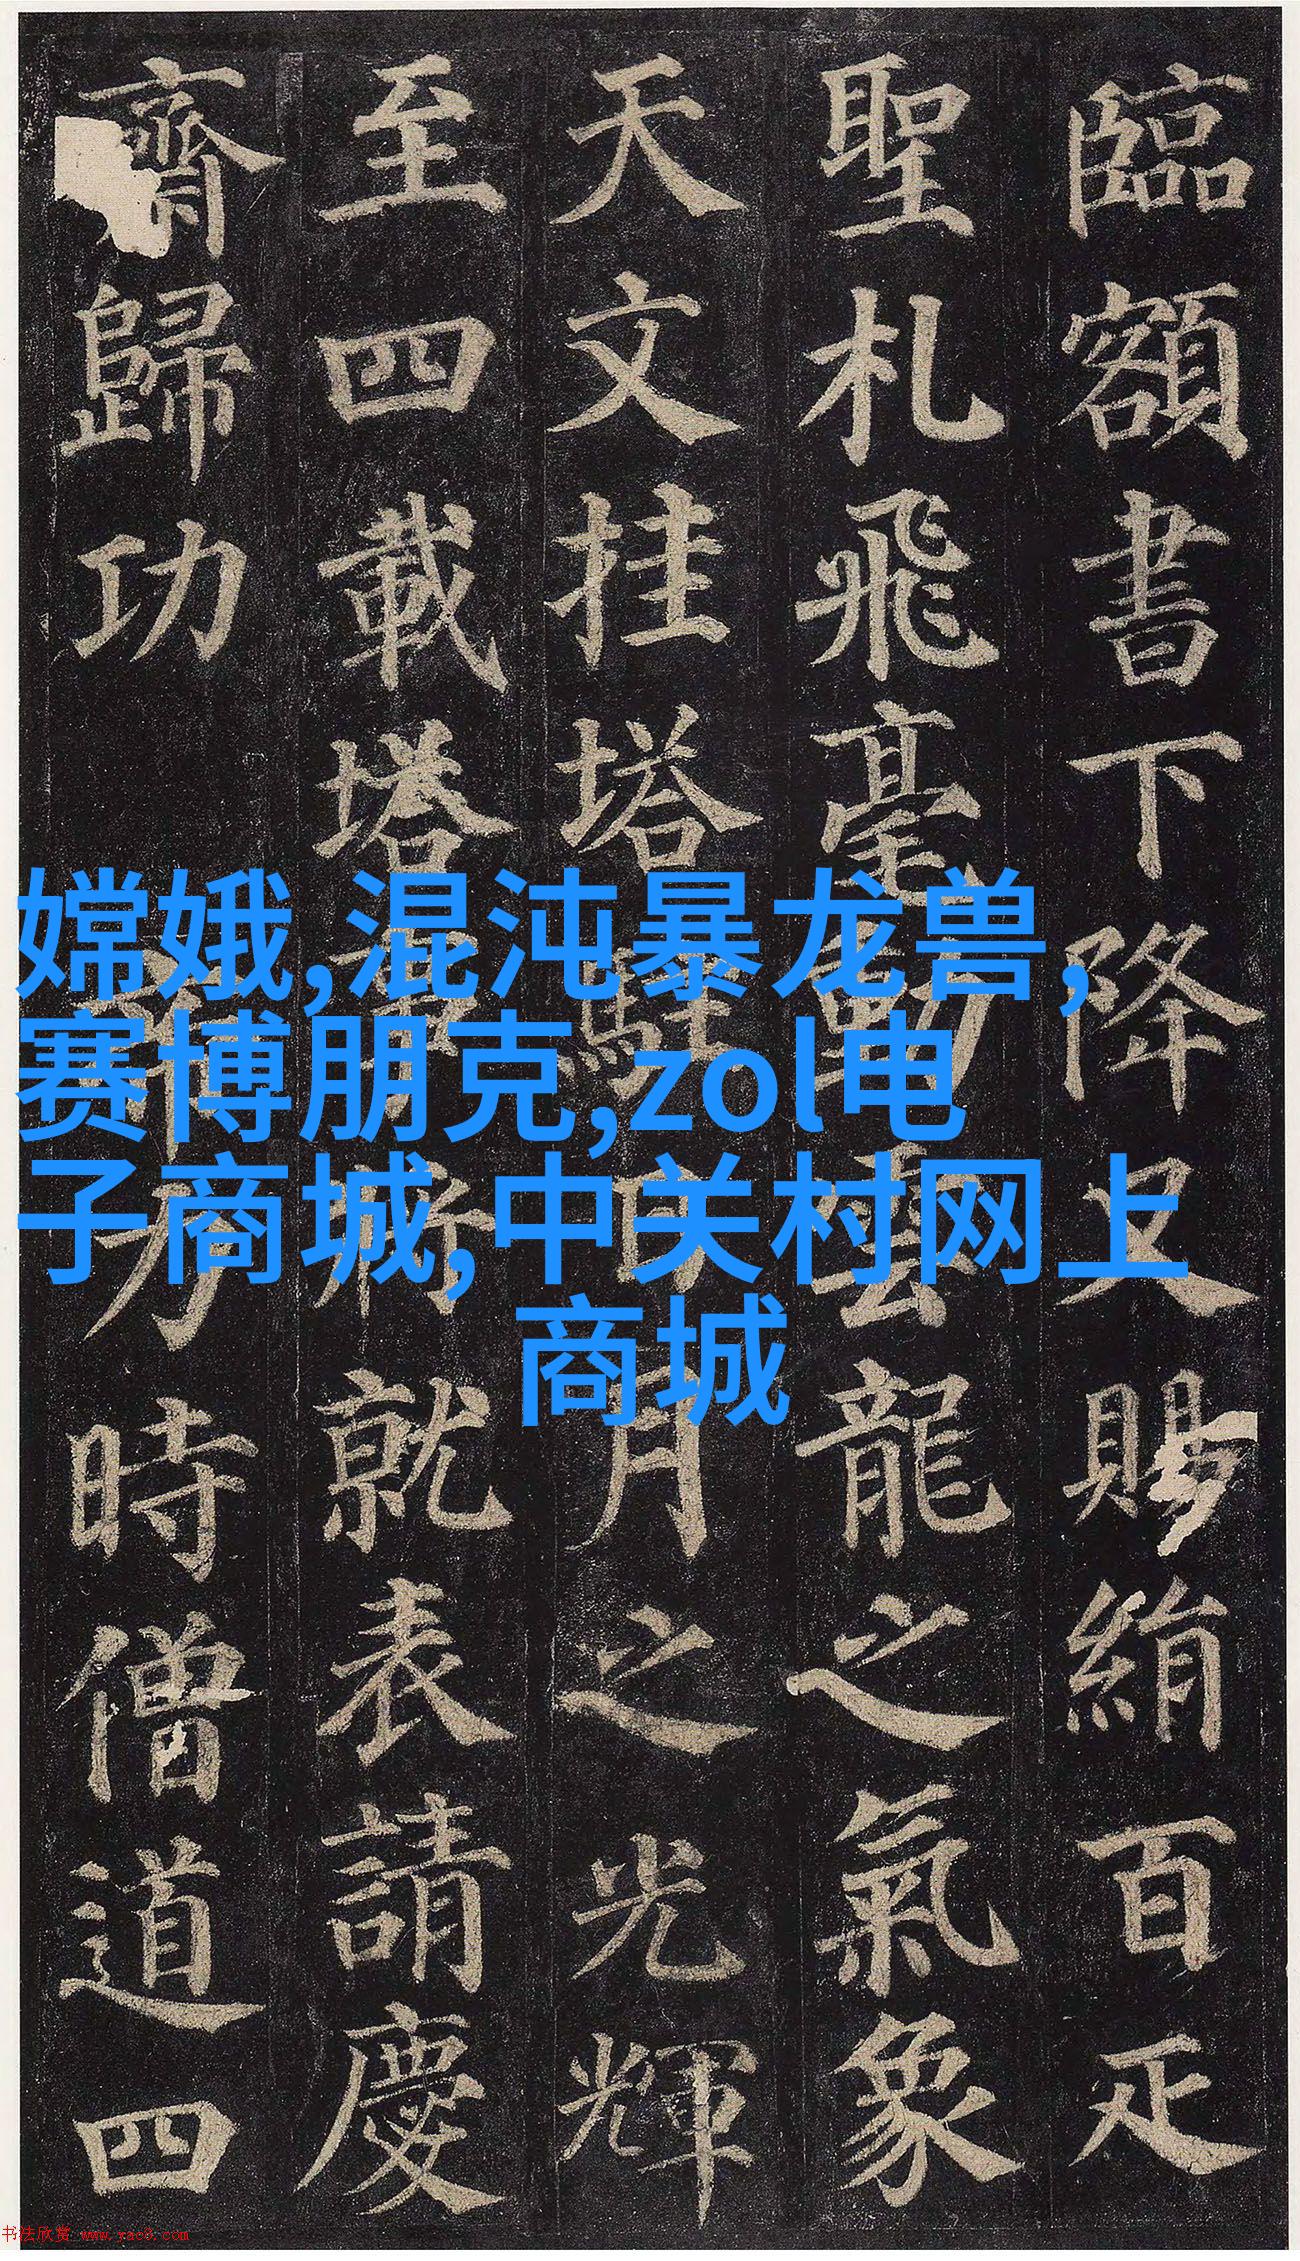 臨額書下降又賜絹百疋
聖札飛毫動雲龍之氣象
天文挂塔駐日月之光輝
至四載塔事將就表請慶
齋歸功 帝力時僧道四
嫦娥,混沌暴龙兽,
赛博朋克,zol电
子商城,中关村网上
商城
书法欣赏 www.yac8.com